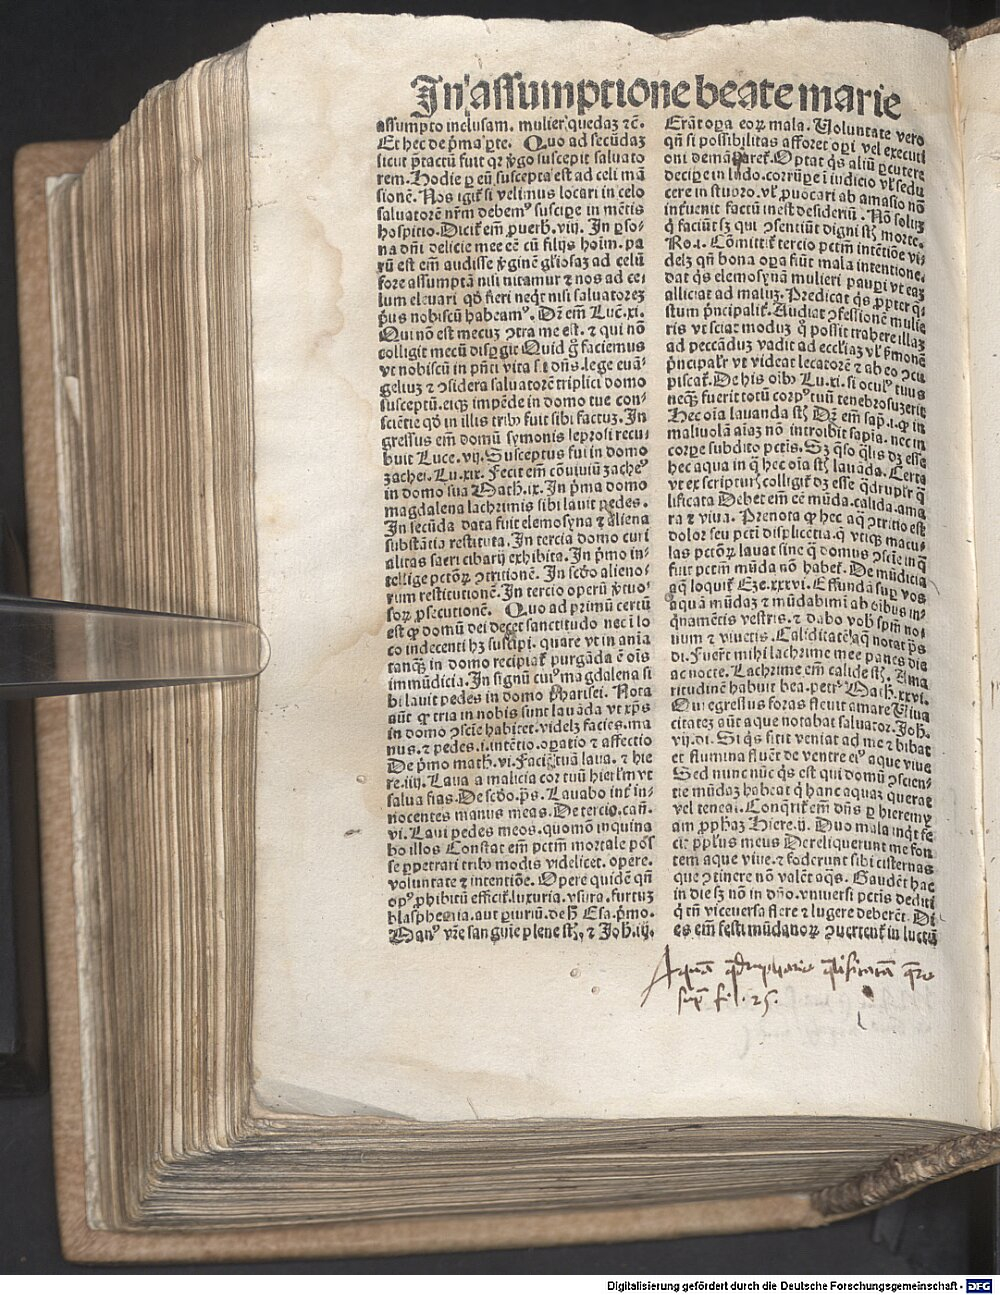 In assumptione beate marie
assumpto inclusam. mulier quedaʒ ⁊c̄.
Et hec de p̄ma ꝑte. Quo ad secūdaʒ
sicut p̄tactū fuit qr v̓go suscepit saluato
rem. Hodie ꝑ eū suscepta est ad celi mā
sionē. Nos igit̉ si velimus locari in celo
saluatorē nr̄m debemꝰ suscipe in mētis
hospitio. Dicit̉ em̄ ꝓuerb. viij. In ꝑso-
na dn̄i delicie mee cē cū filijs hoīm. pa
rū est em̄ audisse v̓ginē gl̓iosaʒ ad celū
fore assumptā nisi nitamur ⁊ nos ad ce-
lum eleuari qd̓ fieri neq̄t nisi saluatoreʒ
p̓us nobiscū habeamꝰ. Dr̄ em̄ Luc̄. xi.
Qui nō est mecuʒ ꝯtra me est. ⁊ qui nō
colligit mecū dispgit Quid g̊ faciemus
vt nobiscū in pn̄ti vita sit dn̄s. lege euā-
geliuʒ ⁊ ꝯsidera saluatorē triplici domo
susceptū. eiqʒ impēde in domo tue con-
sciētie qd̓ in illis tribꝰ fuit sibi factuʒ. In
gressus em̄ domū symonis leprosi recu-
buit Luce. vij. Susceptus fuit in domo
zachei. Lu. xix. Fecit em̄ cōuiuiū zacheꝰ
in domo sua Math. ix. In p̄ma domo
magdalena lachrimis sibi lauit pedes.
In secūda data fuit elemosyna ⁊ aliena
substātia restituta. In tercia domo curi
alitas sacri cibarij exhibita. In p̄mo in-
tellige pctōꝝ ꝯtritionē. In scd̓o alieno-
rum restitutionē. In tercio operū v̓tuo-
soꝝ ꝓsecutionē. Quo ad primū certū
est ꝙ domū dei decet sanctitudo nec i lo
co indecenti hʒ suscipi. quare vt in aīa
tanqʒ in domo recipiat̉ purgāda ē oīs
immūdicia. In signū cuiꝰ magdalena si
bi lauit pedes in domo pharisei. Nota
aūt ꝙ tria in nobis sunt lauāda vt xp̄s
in domo ꝯscīe habitet. videlʒ facies. ma
nus. ⁊ pedes. i. intētio. oꝑatio ⁊ affectio
De p̄mo math. vi. Faciē tuā laua. ⁊ hie
re. iiij. Laua a malicia cor tuū hierl̓m vt
salua fias. De scd̓o. p̄s. Lauabo int̉ in-
nocentes manus meas. De tercio. cañ.
vi. Laui pedes meos. quomō inquina
bo illos Constat em̄ pctm̄ mortale pos̄
se ꝑpetrari tribꝰ modis videlicet. opere.
voluntate ⁊ intentiōe. Opere quidē qn̄
opꝰ ꝓhibitū efficit̉. luxuria. vsura. furtuʒ
blasphemia. aut ꝑiuriū. de h̓ Esa. p̄mo.
Manꝰ vr̄e sanguīe plene st̄, ⁊ Joh. iij.
Erāt oꝑa eoꝝ mala. Voluntate vero
qn̄ si possibilitas afforet oꝑi vel executi
oni demādaret̉. Optat q̄s aliū ꝑcutere
decipe in ludo. corrūpe i iudicio vl̓ sedu
cere in stupro. vl̓ ꝓuocari ab amasio nō
inťuenit factū inest desideriū. Nō soluʒ
q̓ faciūt sʒ qui ꝯsentiūt digni st̄ morte.
Ro. i. Cōmittit̉ tercio pctm̄ intētiōe vi-
delʒ qn̄ bona oꝑa fiūt mala intentione.
dat q̄s elemosynā mulieri paupi vt eaʒ
alliciat ad maluʒ. Predicat q̄s ꝓpter q̄-
stum p̓ncipalit̉. Audiat ꝯfessionē mulie
ris vt sciat moduʒ q̊ possit trahere illaʒ
ad peccāduʒ vadit ad eccl̓iaʒ vl̓ s̓monē
p̓ncipalr̓ vt videat lecatorē ⁊ ab eo ꝯcu
piscat̉. De his oībꝰ Lu. xi. si oculꝰ tuus
neqʒ fuerit totū corpꝰ tuū tenebrosuʒ erit
Hec oīa lauanda st̄ Dr̄ em̄ sap̄. i. ꝙ in
maliuolā aīaʒ nō introibit sapīa. nec in
corpe subdito pctīs. Sʒ q̄so q̄lis dʒ esse
hec aqua in q̄ hec oīa st̄ lauāda. Certe
vt ex scripturꝭ colligit̉ dʒ esse q̄druplr̓ q̄
lificata Debet em̄ cē mūda. calida. ama
ra ⁊ viua. Prenota ꝙ hec aq̄ ꝯtritio est
dolor seu pcti displicētia. q̄ vtiqʒ macu-
las pctōꝝ lauat sine q̄ domus ꝯscīe in q̄
fuit pctm̄ mūda nō habet̉. De mūdicia
aq̄ loquit̉ Eze. xxxvi. Effundā suꝑ vos
aquā mūdaʒ ⁊ mūdabimī ab oībus in-
q̄namētis vestris. ⁊ dabo vob̓ spm̄ no-
uum ⁊ viuetis. Caliditatē aq̄ notat p̄s
di. Fuer̄t mihi lachrime mee panes die
ac nocte. Lachrime em̄ calide st̄. Ama
ritudinē habuit bea. petrꝰ Math. xxvi.
Qui egressus foras fleuit amare Viua
citateʒ aūt aque notabat saluator. Joh.
vij. di. Si q̄s sitit veniat ad me ⁊ bibat
et flumina fluēt de ventre eiꝰ aque viue
Sed nunc nūc q̄s est qui domū ꝯscien-
tie mūdaʒ habeat q̓ hanc aquaʒ querat
vel teneat. Conq̄rit̉ em̄ dn̄s ꝑ hieremy
am ꝓphaʒ Hiere. ij. Duo mala inq̄t fe
cit ppl̓us meus Dereliquerunt me fon
tem aque viue. ⁊ foderunt sibi cisternas
que ꝯtinere nō valēt aq̄s. Gaudēt hac
in die sʒ nō in dn̄o. vniuersi pctīs dediti
q̓ tn̄ viceuersa flere ⁊ lugere deberēt. Di
es em̄ festi mūdanoꝝ ꝯuertent̉ in luctū
Aquā q̄druplicarie q̄lificatā q̄re
supͣ f. l. 25.
Digitalisierung gefördert durch die Deutsche Forschungsgemeinschaft - DFG